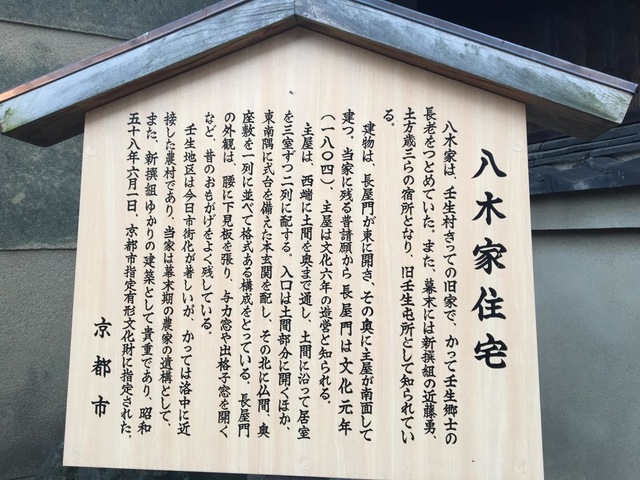 八木家住宅
八木家は、壬生村きっての旧家で、かつて壬生郷士の
長老をつとめていた。また、幕末には新撰組の近藤勇、
土方歳三らの宿所となり、旧壬生屯所として知られてい
る。
建物は、長屋門が東に開き、その奥に主屋が南面して
建つ。当家に残る普請願から長屋門は文化元年
(一八〇四)、主屋は文化六年の造営と知られる。
主屋は、西端に土間を奥まで通し、土間に沿って居室
を三室ずつ二列に配する。入口は土間部分に開くほか、
東南隅に式台を備えた本玄関を配し、その北に仏間、奥
座敷を一列に並べて格式ある構成をとっている。長屋門
の外観は、腰に下見板を張り、与力窓や出格子窓を開く
など、昔のおもがげをよく残している。
壬生地区は今日市街化が著しいが、かつては洛中に近
接した農村であり、当家は幕末期の農家の遺構として、
また、新撰組ゆかりの建築として貴重であり、昭和
五十八年六月一日、京都市指定有形文化財に指定された。
京都市